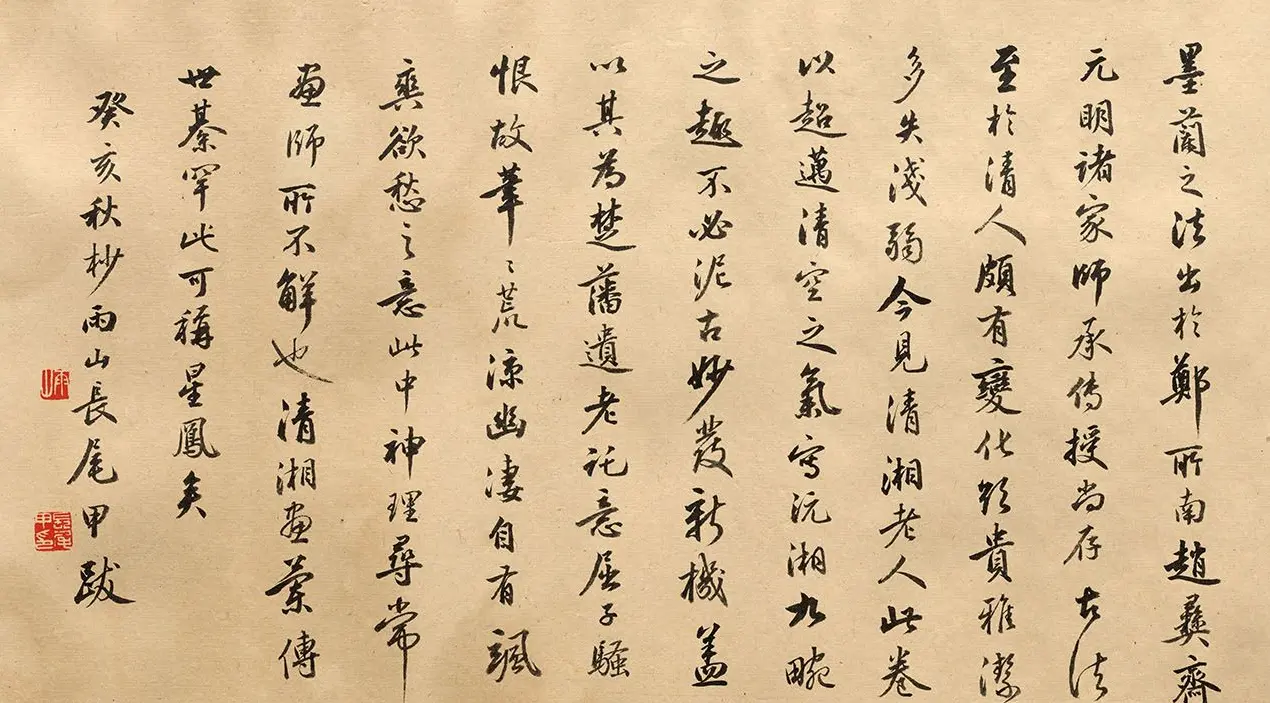 墨蘭之法出於鄭所南趙彝齋
元明諸家師承傳授尚存古法
至於清人頗有變化雖貴雅潔
多失淺弱今見清湘老人此卷
以超邁清空之氣寫沅湘九畹
之趣不必泥古妙發新機蓋
以其為楚藩遺老託意屈子騷
恨故筆〻荒涼幽淒自有颯
爽欲愁之意此中神理尋常
畫師所不解也清湘畫蘭傳
世綦罕此可稱星鳳矣
癸亥秋杪雨山長尾甲跋
雨山
長尾甲印